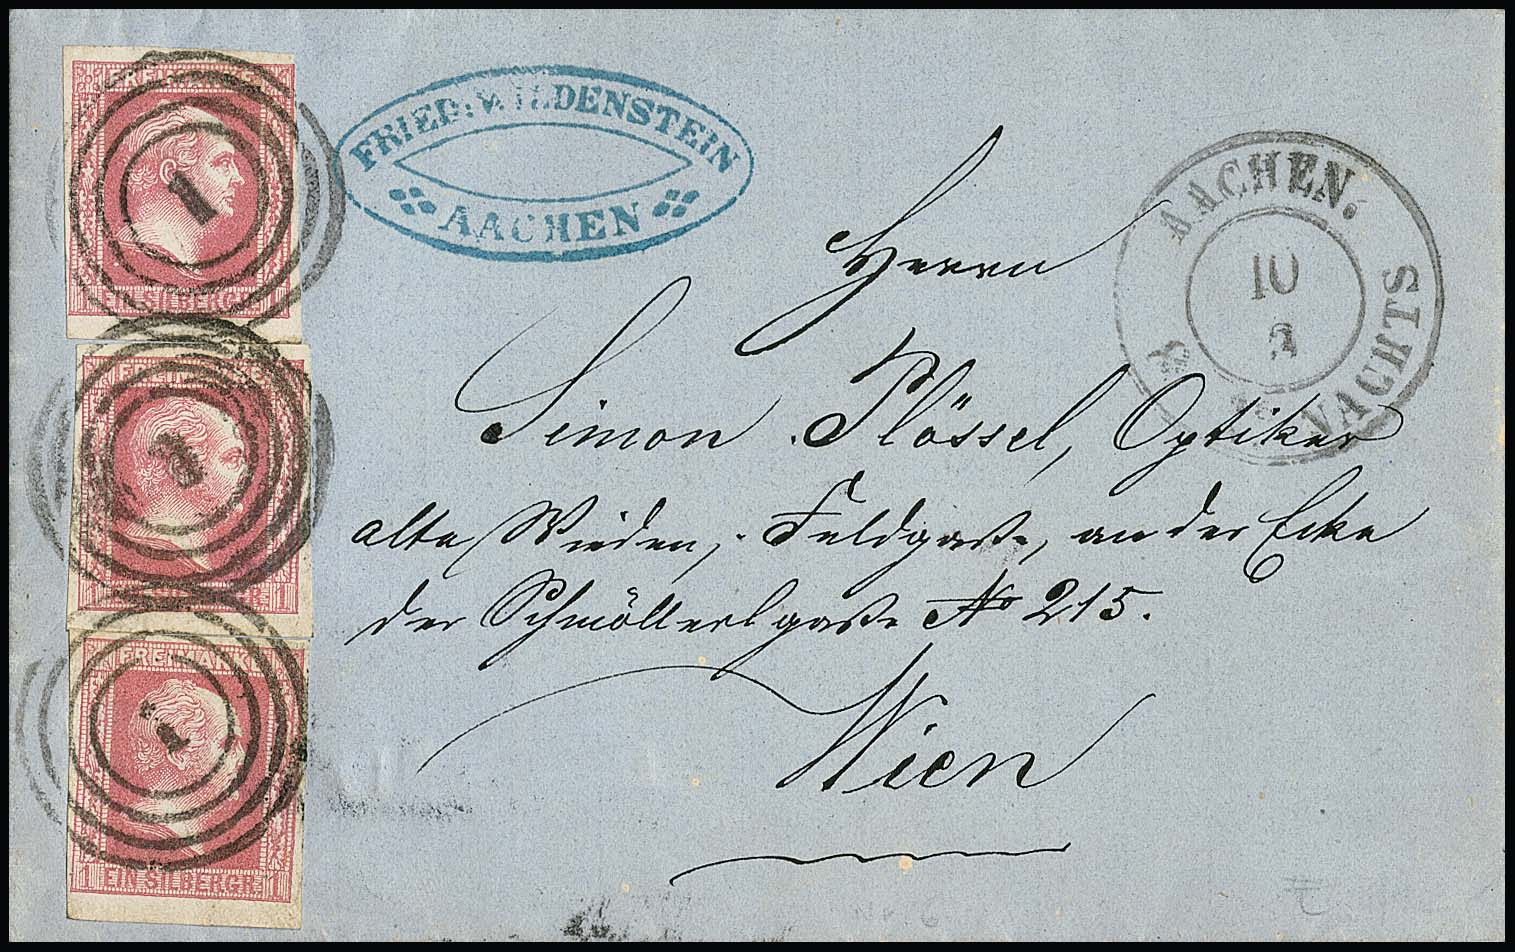 FREIMARKE
1
1 EIN SILBERGR. 1
1 EIN SILBERGR. 1
FREIMARKE
1
1 EIN SILBERGR. 1
FRIED: WILDENSTEIN
AACHEN
AACHEN.
10
3
NACHTS
Herrn
Simon Plössel, Optiker
alte Wieden, Feldgasse, an der Ecke
der Schmöllerlgasse No 215.
Wien